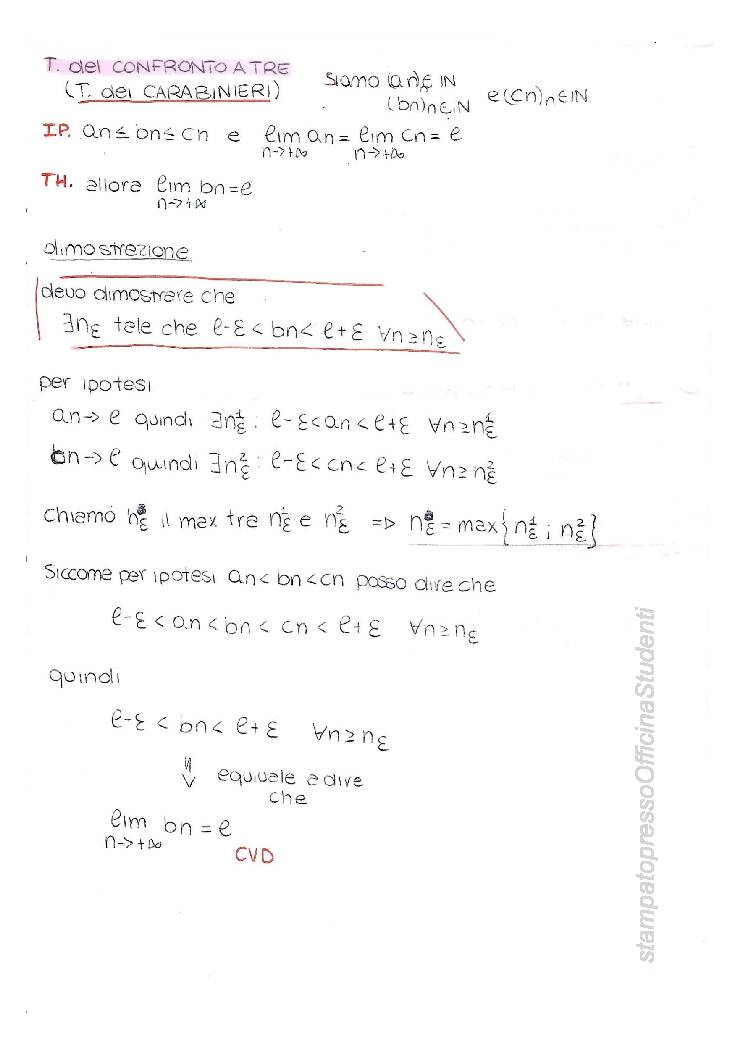 T. del CONFRONTO A TRE
(T. dei CARABINIERI)
Siano (an)n∈IN
(bn)n∈IN e (Cn)n∈IN
IP. an ≤ bn ≤ cn e lim an = lim cn = l
n->+∞ n->+∞
TH. allora lim bn = l
n->+∞
dimostrazione
devo dimostrare che
∃nε tale che l-ε < bn < l+ε ∀n≥nε
per ipotesi
an -> l quindi ∃n¹ε : l-ε < an < l+ε ∀n≥n¹ε
bn -> l quindi ∃n²ε : l-ε < cn < l+ε ∀n≥n²ε
chiamo nε il max tra n¹ε e n²ε => nε = max{n¹ε ; n²ε}
Siccome per ipotesi an < bn < cn posso dire che
l-ε < an < bn < cn < l+ε ∀n≥nε
quindi
l-ε < bn < l+ε ∀n≥nε
⇓ equivale a dire
che
lim bn = l
n->+∞
CVD
stampatopressoOfficinaStudenti